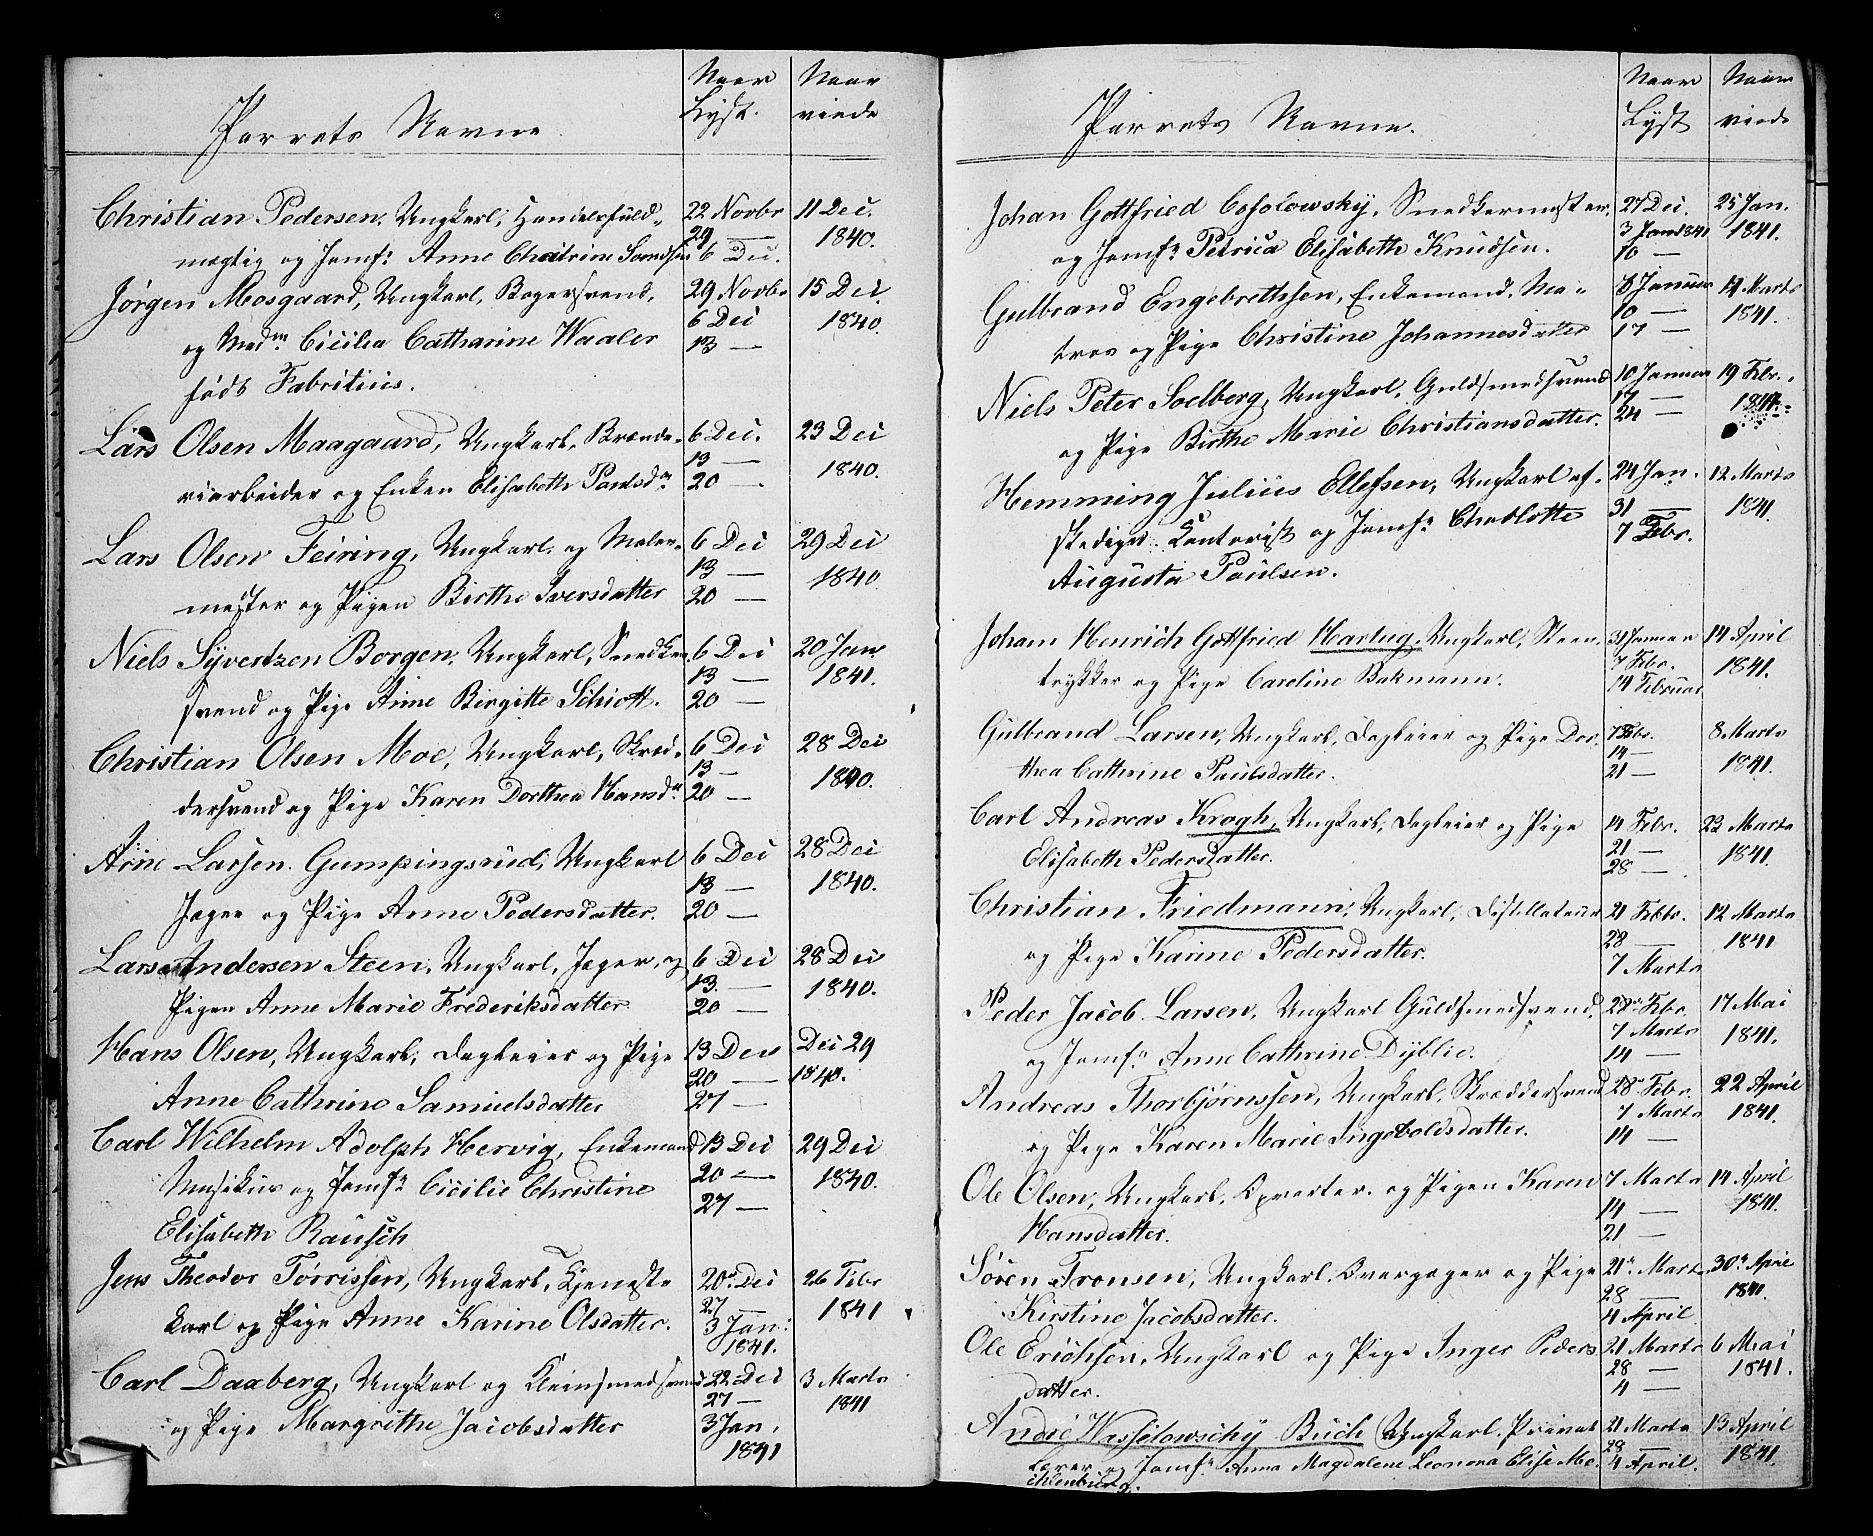 Parrets Navne
Naar Lyst.
Naar viede
Christian Pedersen, Ungkarl, Handelsfuld-
mægtig og Jomfr: Anne Chatrine
22 Novbr
29 —
6 Dec.
11 Dec.
1840.
Jørgen Mosgaard, Ungkarl, Bagersvend,
og Madm Cicilia Catharine Waaler
født Fabritius.
29 Novbr
6 Dec
13 —
15 Dec.
1840.
Lars Olsen Maagaard, Ungkarl, Brænde-
viarbeider og Enken Elisabeth Paulsdr
6 Dec.
13 —
20 —
23 Dec
1840.
Lars Olsen Feiring, Ungkarl og Maler-
mester og Pigen Birthe Iversdatter
6 Dec
13 —
20 —
29 Dec
1840
Niels Syvertzen Borgen, Ungkarl, Snedker
svend og Pige Anne Birgitte Schiøtt.
6 Dec
13 —
20 —
20 Jan.
1841.
Christian Olsen Moe, Ungkarl, Skræd-
dersvend og Pige Karen Dorthea Hansdr
6 Dec
13 —
20 —
28 Dec
1840.
Arne Larsen Gumpingsrud, Ungkarl
Jæger og Pige Anne Pedersdatter.
6 Dec
13 —
20 —
28 Dec
1840.
Lars Andersen Steen, Ungkarl, Jæger, og
Pigen Anne Marie Frederiksdatter
6 Dec
13 —
20 —
28 Dec
1840.
Hans Olsen, Ungkarl, Dagleier og Pige
Anne Cathrine Samuelsdatter
13 Dec
20 —
27 —
Dec 29
1840.
Carl Wilhelm Adolph Hervig, Enkemand
Musikus og Jomfr Cicilie Christine
Elisabeth Rausch
13 Dec
20 —
27 —
29 Dec
1840.
Jens Theodor Tørrissen, Ungkarl, Tjeneste
karl og Pige Anne Karine Olsdatter.
20 Dec
27 —
3 Jan:
1841.
26 Febr
1841
Carl Daaberg, Ungkarl og Kleinsmedsvend
og Pige Margrethe Jacobsdatter
22 Dec
27 —
3 Jan.
1841
3 Marts
1841
Parrets Navne.
Naar Lyst
Naar viede
Johan Gottfried Cosolowsky, Snedkermester
og Jomfr Petrica Elisabeth Knudsen.
27 Dec.
3 Jan 1841
10 —
25 Jan.
1841.
Gulbrand Engebrethsen, Enkemand, Ma-
tros og Pige Christine Johannesdatter
Januar
10 —
17 —
14 Marts
1841.
Niels Peter Soelberg, Ungkarl, Guldsmedsvend
og Pige Birthe Marie Christiansdatter.
10 Januar
17 —
24 —
19 Febr.
1841
Hemming Julius Ellefsen, Ungkarl af-
skediget Kontorist og Jomfr Charlotte
Augusta Paulsen.
24 Jan.
31 —
7 Febr.
12 Marts
1841.
Johan Henrich Gottfried Hartug, Ungkarl, Steen
trykker og Pige Caroline Bakmann.
31 Januar
7 Febr.
14 Februar
14 April
1841.
Gulbrand Larsen, Ungkarl, Dagleier og Pige Dor-
thea Cathrine Paulsdatter.
7 Febr.
14 —
21 —
8 Marts
1841.
Carl Andreas Krogh, Ungkarl, Dagleier og Pige
Elisabeth Pedersdatter.
14 Febr.
21 —
28 —
22 Marts
1841.
Christian Friedmann, Ungkarl, Distillateur
og Pige Karine Pedersdatter.
21 Febr.
28 —
7 Marts
12 Marts
1841
Peder Jacob Larsen, Ungkarl Guldsmedsvend.
og Jomfr Anne Cathrine Dyblie.
28 Febr.
7 Marts
14 —
17 Mai
1841.
Andreas Thorbjørnssen, Ungkarl, Skræddersvend
og Pige Karen Marie Ingeboldsdatter.
28 Febr.
7 Marts
14 —
22 April
1841.
Ole Olsen, Ungkarl, Opvarter og Pigen Karen
Hansdatter.
7 Marts
14 —
21 —
14 April
1841.
Sören Tronsen, Ungkarl, og Pige
Kirstine Jacobsdatter.
21 Marts
28 —
4 April.
30 April
1841.
Ole Erichsen, Ungkarl og Pige Inger Peders
datter.
21 Marts
28 —
4 —
6 Mai
1841.
André Wassilowschy Buch Ungkarl, Privat
Lærer og Jomfr Anna Magdalene Leonora Elise Me-
chlenburg.
21 Marts
28 —
4 April.
13 April
1841.